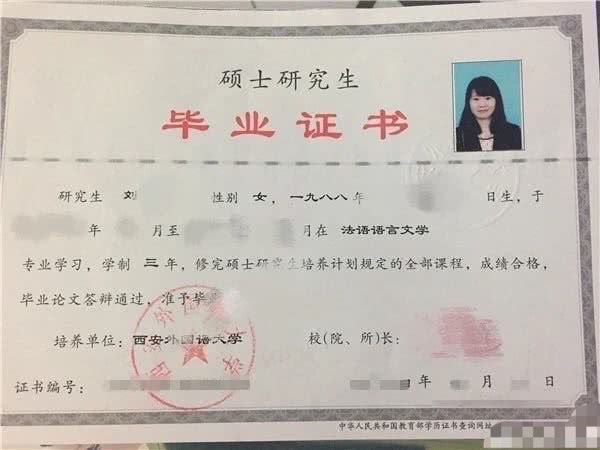 硕士研究生
毕业证书
研究生 刘 性别 女，一九八八年 日生，于
年 月至 月在 法语语言文学
专业学习，学制 三 年，修完硕士研究生培养计划规定的全部课程，成绩合格，
毕业论文答辩通过，准予毕
培养单位：西安外国语大学 校(院、所)长：
证书编号： 年 月 日
中华人民共和国教育部学历证书查询网址